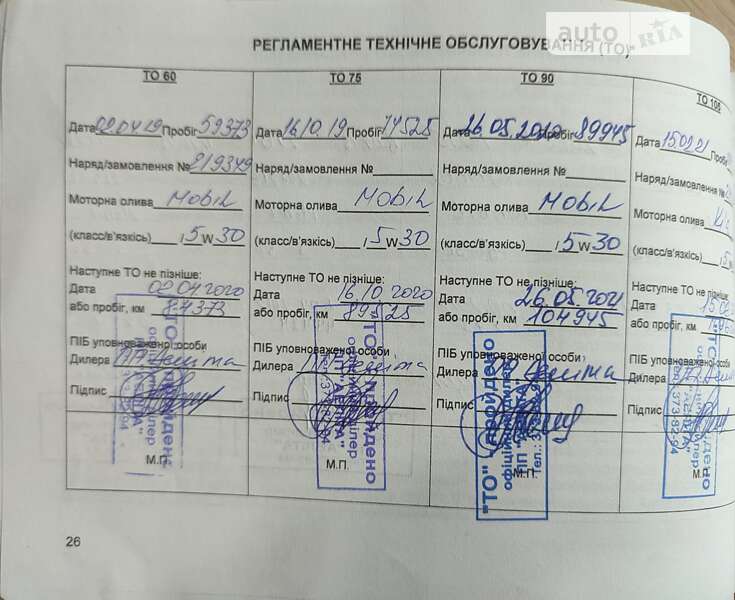 auto RIA
РЕГЛАМЕНТНЕ ТЕХНІЧНЕ ОБСЛУГОВУВАННЯ (ТО)
ТО 60
Дата 02.04.19 Пробіг 59373
Наряд/замовлення № 219349
Моторна олива Mobil
(класс/в'язкість) / 5 W 30
Наступне ТО не пізніше:
Дата 02.04.2020
або пробіг, км 84373
ПІБ уповноваженої особи
Дилера
Підпис
М.П.
ТО 75
Дата 16.10.19 Пробіг 74525
Наряд/замовлення №
Моторна олива Mobil
(класс/в'язкість) / 5 W 30
Наступне ТО не пізніше:
Дата 16.10.2020
або пробіг, км 89525
ПІБ уповноваженої особи
Дилера
Підпис
М.П.
ТО 90
Дата 26.05.2020 Пробіг 89945
Наряд/замовлення №
Моторна олива Mobil
(класс/в'язкість) / 5 W 30
Наступне ТО не пізніше:
Дата 26.05.2021
або пробіг, км 104945
ПІБ уповноваженої особи
Дилера
Підпис
М.П.
"ТО" пройдено
офіційний дилер
ПП "АЕЛІТА"
ТО 105
Дата 15.02.21 Пробіг
Наряд/замовлення №
Моторна олива
(класс/в'язкість)
Наступне ТО не пізніше
Дата
або пробіг, км
ПІБ уповноваженої особи
Дилера
Підпис
26